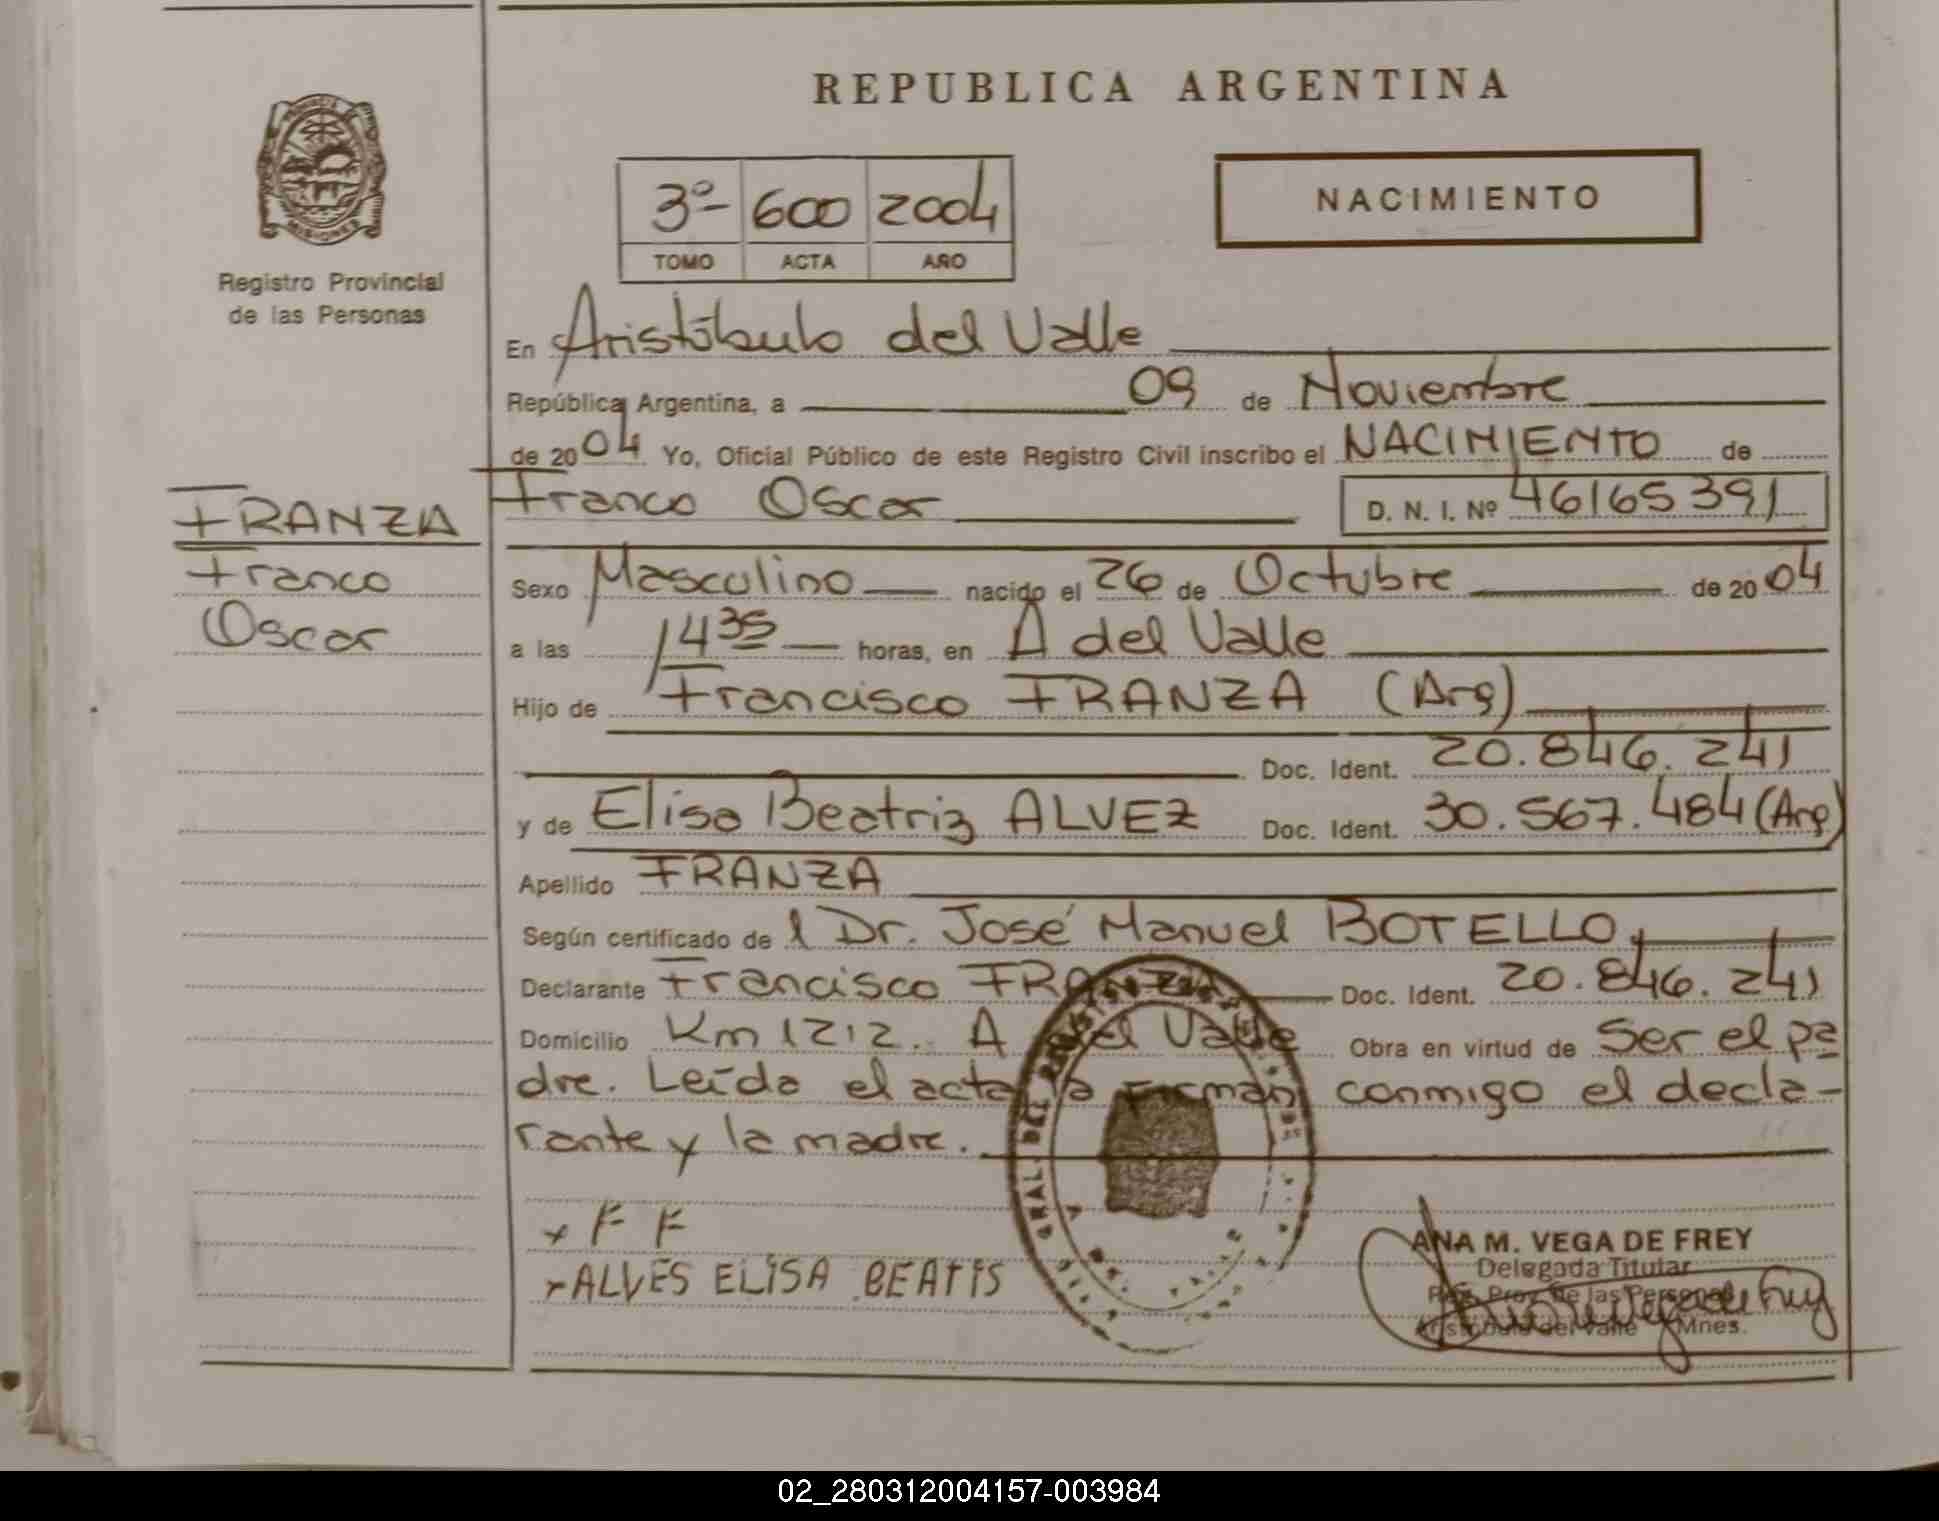 REPUBLICA ARGENTINA
MISIONES
Registro Provincial
de las Personas
3º 600 2004
TOMO ACTA AÑO
NACIMIENTO
En Aristóbulo del Valle
República Argentina, a 09 de Noviembre
de 2004 Yo, Oficial Público de este Registro Civil inscribo el NACIMIENTO de
FRANZA
Franco
Oscar
Franco Oscar D. N. I. Nº 46165391
Sexo Masculino nacido el 26 de Octubre de 2004
a las 14 35 horas, en A del Valle
Hijo de Francisco FRANZA (Arg)
Doc. Ident. 20.846.241
y de Elisa Beatriz ALVEZ Doc. Ident. 30.567.484 (Arg)
Apellido FRANZA
Según certificado de l Dr. José Manuel BOTELLO
Declarante Francisco FRANZA Doc. Ident. 20.846.241
Domicilio Km 1212. A del Valle Obra en virtud de Ser el pa
dre. Leída el acta la firman conmigo el decla-
rante y la madre.
+ F F
+ ALVES ELISA BEATIS
GRAL. DEL
ANA M. VEGA DE FREY
Delegada Titular
Reg. Prov. de las Personas
Aristóbulo del Valle Mnes.
02_280312004157-003984